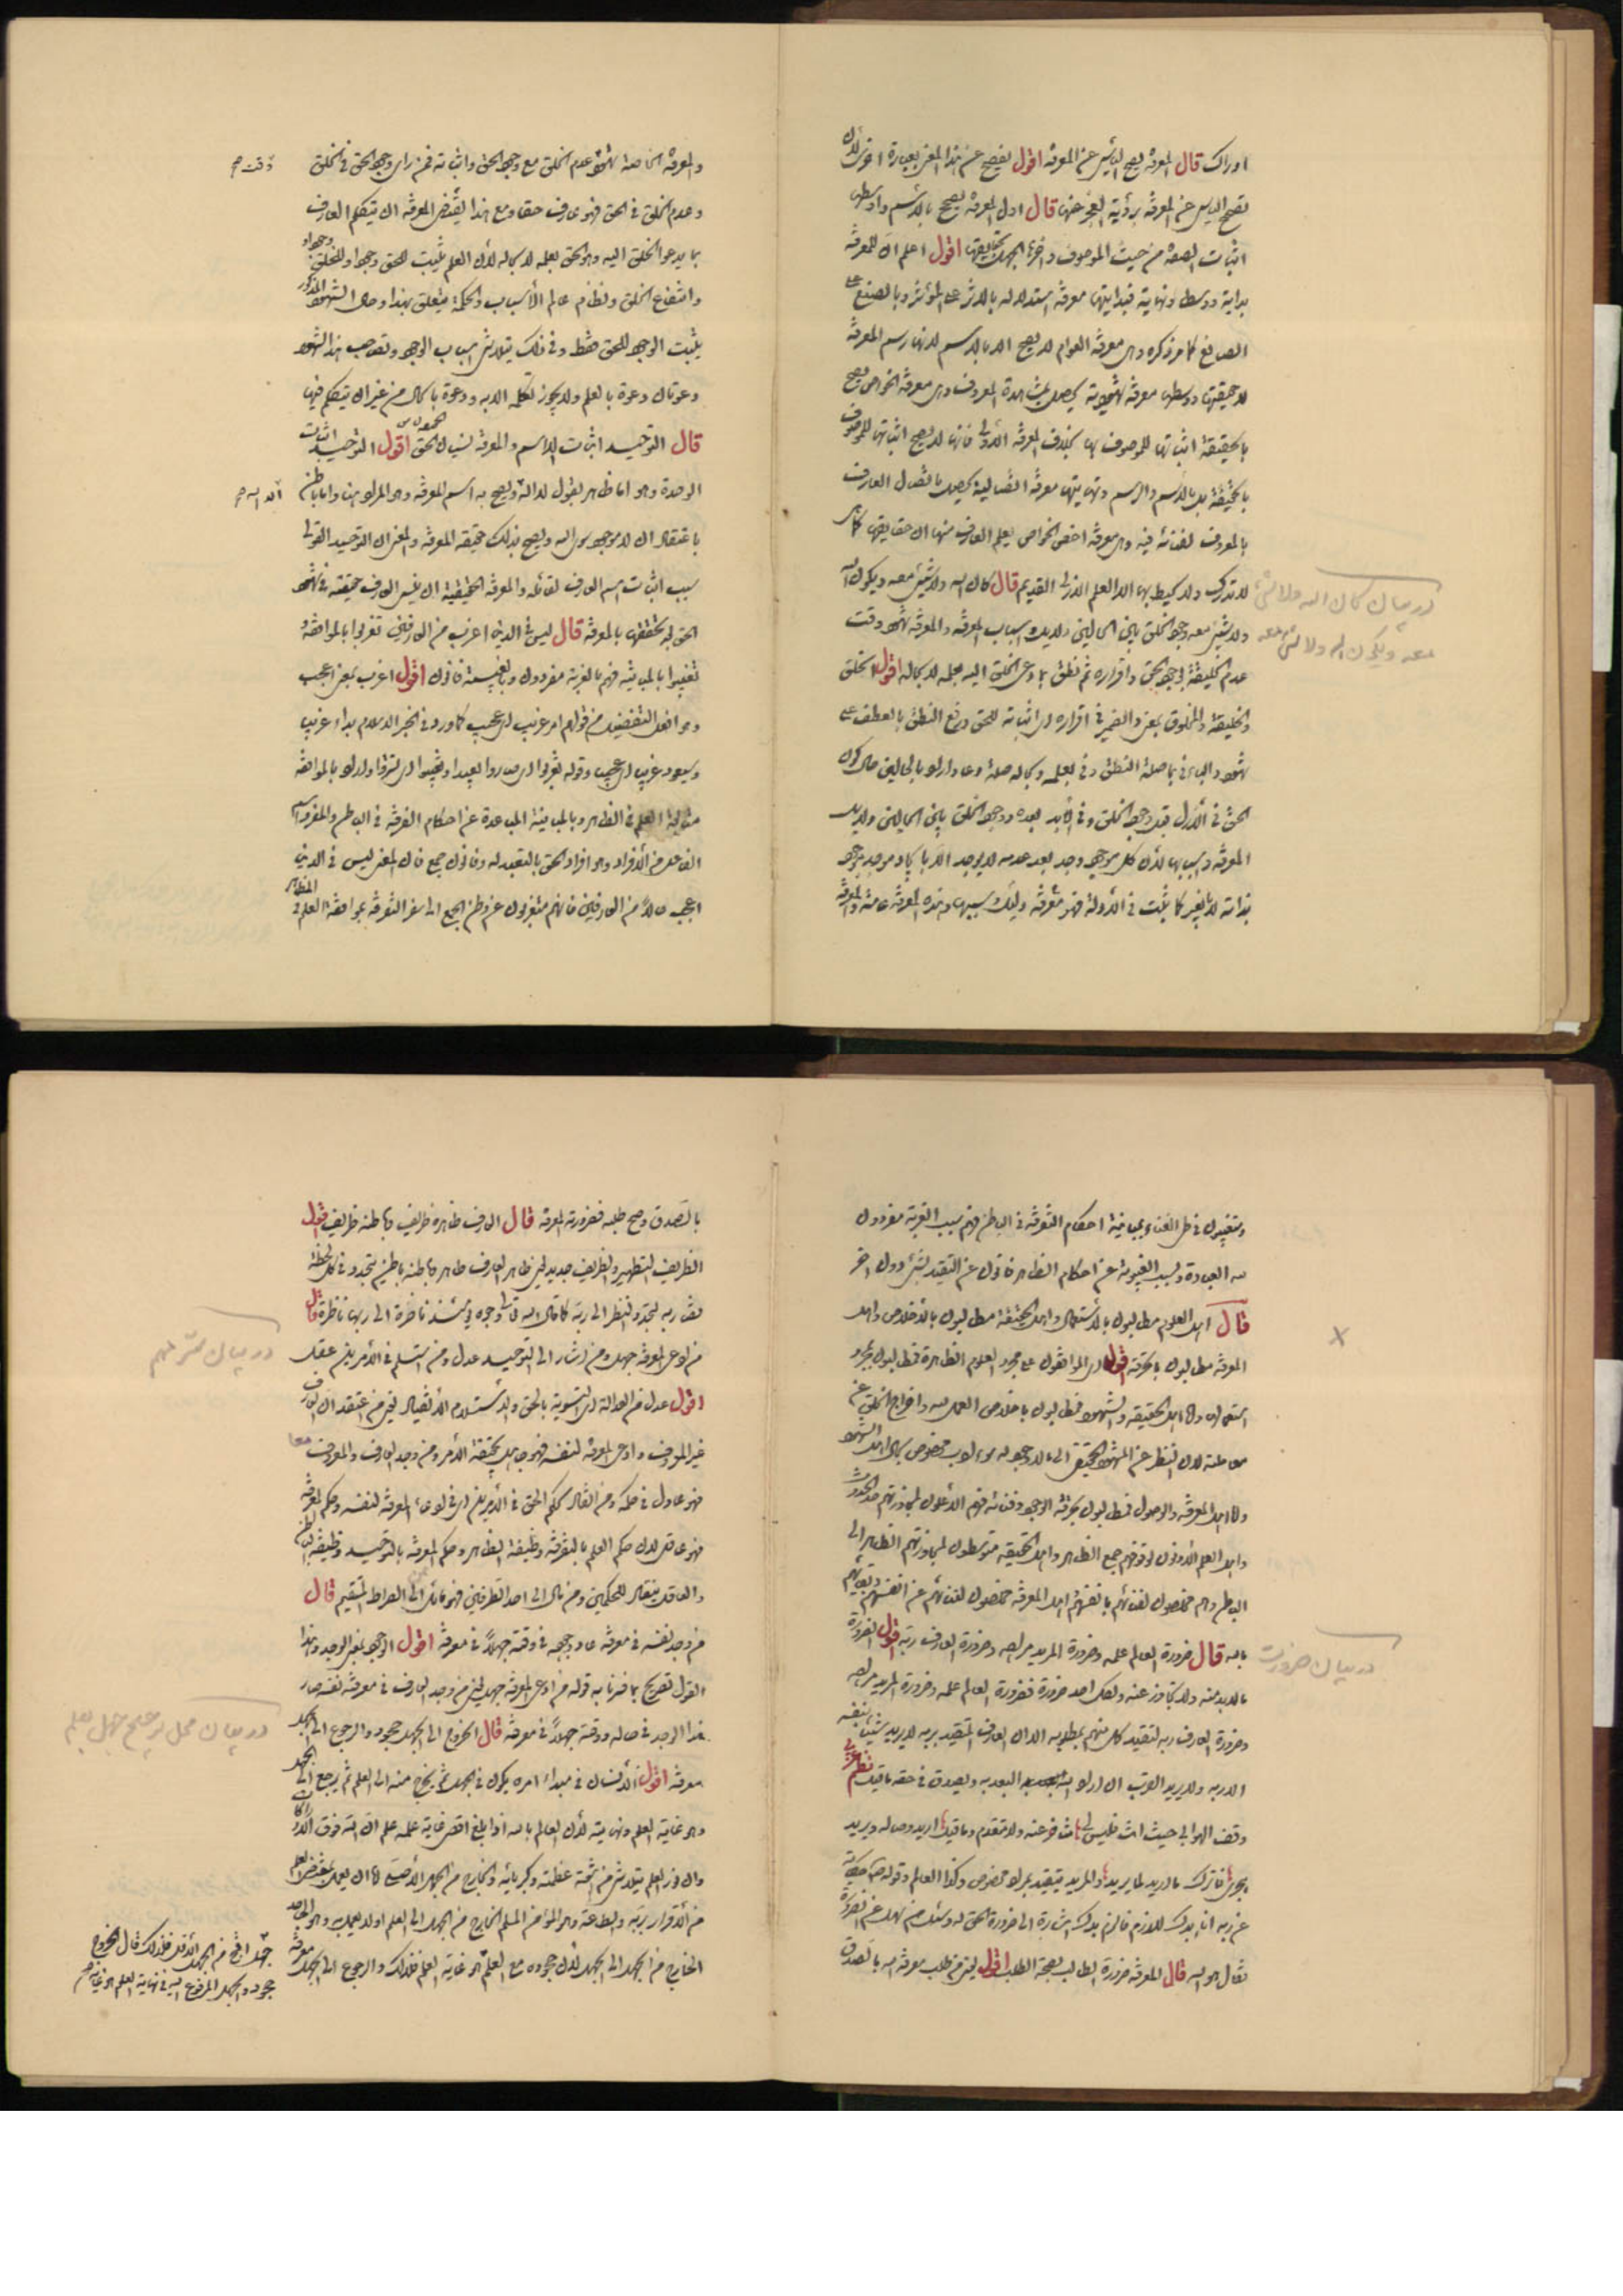 ادراك قال المعرفة يصح اليأس عن المعرفة اقول يفصح عن هذا المعنى بعبارة اخرى لان
تصحيح اليأس عن المعرفة برؤية العجز عنها قال اول المعرفة يصح بالرسم واوسطها
اثبات الصفة من حيث الموصوف واخرها الجهل بحقايقها اقول اعلم ان للمعرفة
بداية ووسط ونهاية فبدايتها معرفة استدلالية بالاثر على المؤثر وبالصنع على
الصانع كما مر ذكره وهى معرفة العوام لا يصح الا بالرسم لانها رسم المعرفة
لا حقيقتها ووسطها معرفة شهودية يحصل بمشاهدة المعروف وهى معرفة الخواص يصح
بالحقيقة اثباتها للموصوف بها بخلاف المعرفة الاولى فانها لا يصح اثباتها للموصوف
بالحقيقة بل بالاسم والرسم ونهايتها معرفة اتصالية يحصل باتصال العارف
بالمعروف لفنائه فيه وهى معرفة اخص الخواص يعلم العارف منها ان حقايقها كما هى
لا تدرك ولا يحيط بها الا العلم الازلى القديم قال كان الله ولا شىء معه ويكون الله
ولا شىء معه وجود الخلق بين الحالين ولا يدرك اسباب المعرفة والمعرفة شهود وقت
عدم الخليقة بوجود الحق واقراره ثم نطق بما دعى الخلق اليه بعلمه لا بحاله اقول الخلق
والخليقة والمخلوق بمعنى والضمير فى اقراره اى اثباته للحق ورفع النطق بالعطف على
شهود والباء فى بما صلة النطق وفى بعلمه وبحاله صلة دعا واراد بالحالين حال كون
الحق فى الازل قبل وجود الخلق وفى الابد بعده ووجود الخلق بين الحالين ولا يدرك
المعرفة واسبابها لان كل موجود وجد بعد عدمه لا يوجد الا بايجاد موجد موجود
بذاته لا بغير كما يثبت فى الادلة فهو معرفة وليك سببها وهذه المعرفة عامة والمعرفة
در بيان كان الله ولا شىء
معه ويكون الله ولا شىء معه
والمعرفة الخاصة شهود عدم الخلق مع وجود الحق واثباته فمن راى وجود الحق فى الخلق
وعدم الخلق فى الحق فهو عارف حقا ومع هذا يقتضى المعرفة ان يتكلم العارف
بما يدعو الخلق اليه وهو الحق بعلمه لا بحاله لان العلم يثبت للحق وجودا وللخلق وجودا
وانتفاع الخلق ونظام عالم الأسباب والحكمة متعلق بهذا وحال الشهود المذكور
يثبت الوجود للحق فقط وفى ذلك يتلاشى اسباب الوجود ولصاحب هذا الشهود
دعوتان دعوة بالعلم ولا يجوز التكلم الا به ودعوة بالحال من غير ان يتكلم فيها
قال التوحيد اثبات الاسم والمعرفة نسيان الحق اقول التوحيد اثبات
الوحدة وهو اما ظاهر بقول لا اله ويصح به اسم المعرفة وهو المراد هنا واما باطن
باعتقاد ان لا موجود سوى الله ويصح بذلك حقيقة المعرفة والمعنى ان التوحيد القولى
سبب اثبات اسم العارف لقائله والمعرفة الحقيقية ان ينسى العارف حقيقته فى شهود
الحق لا بتحققها بالمعرفة قال ليس فى الدنيا اعزب من العارفين تغربوا بالموافقة و
تغيبوا بالمباينة فهم بالغربة مفردون وبالغيبة فانون اقول اعزب بمعنى اعجب
وهو افعل التفضيل من قولهم امر غريب اى عجيب كما ورد فى الخبر الاسلام بداء غريبا
وسيعود غريبا اى عجيبا وقوله تغربوا اى صاروا بعيدا وتغيبوا اى استتروا واراد بالموافقة
متابعة العلم فى الظاهر وبالمباينة المباعدة عن احكام التفرقة فى الباطن والمفرد اسم
الفاعل من الافراد وهو افراد الحق بالتعبد له وفانون جمع فان المعنى ليس فى الدنيا
اعجب حالا من العارفين فانهم متغربون عن وطن الجمع الى سفر التفرقة بموافقة العلم فى الظاهر
ويتغيبون فى ظل الفناء بمباينة احكام التفرقة فى الباطن فهم بسبب الغربة مفردون
لله العبادة وبسبب الغيبوبة عن احكام الظاهر فانون عن التقيد بشىء دون اخر
قال اهل العلوم مطالبون بالاستعمال واهل الحقيقة مطالبون بالاخلاص واهل
المعرفة مطالبون بالحرقة اقول اى الواقفون على مجرد العلوم الظاهرة فمطالبون بمجرد
استعمالها واما اهل الحقيقة والشهود فمطالبون باخلاص العمل لله واخراج الخلق عن
معاملته لان النظر عن المشهود الحقيقى الى ما لا وجود له سوء ادب مخصوص بحال اهل الشهود
واما اهل المعرفة والوصول فمطالبون بحرقة الوجود وفنائه فهم الاعلون لمجاوزتهم حد الحدوث
واهل العلم الادنون لوقوفهم جمع الظاهر واهل الحقيقة متوسطون لمجاوزتهم الظاهر الى
الباطن وهم مخلصون لفنائهم بانفسهم اهل المعرفة مخلصون لفنائهم عن انفسهم وبقائهم
بالله قال ضرورة العالم علمه وضرورة المريد مراده وضرورة العارف ربه اقول الضرورة
ما لا بد منه ولا يتجاوز عنه ولكل احد ضرورة فضرورة العالم علمه وضرورة المريد مراده
وضرورة العارف ربه لتقيد كل منهم بمطلوبه الا ان العارف المتقيد بربه لا يريد شيئا لنفسه
الا ربه ولا يريد القرب ان اراد البعد به ويصدق فى حقه ما قيل نظم عربى
وقف الهوا بى حيث انت فليس لى متاخر عنه ولا متقدم وما قيل اريد وصاله ويريد
هجرى فاترك ما اريد لما يريد والمريد يتقيد بمراد مخصوص وكذا العالم وقوله حكاية
عن ربه انا بدك اللازم فالزم بدك اشارة الى ضرورة الحق
فقال هو الله قال المعرفة ضرورة الطالب بصحة الطلب اقول يعنى من طلب معرفة الله بالصدق
در بيان ضرورت
بالصدق وصح طلبه فضرورته المعرفة قال العارف ظاهره ظريف وباطنه ظريف اقول
الظريف التطهير والظريف جديد يعنى ظاهر العارف طاهر وباطنه باطن يتجدد فى كل لحظة
لقاء ربه لتجدد النظر الى ربه كما قال الله تعالى وجوه يومئذ ناضرة الى ربها ناظرة قال
من ادعى المعرفة جهل ومن اشار الى التوحيد عدل ومن استسلم فى الأمرين عقل
اقول عدل من العدالة اى التسوية بالحق والاستسلام الانقياد يعنى من اعتقد ان العارف
غير المعروف وادعى المعرفة لنفسه فهو جاهل بحقيقة الأمر ومن وجد العارف والمعروف معا
فهو عادل فى حكمه ومن انقاد لحكم الحق فى الأمرين اى فى دعوى المعرفة لنفسه وحكم المعرفة
فهو عاقل لان حكم العلم بالتفرقة وظيفة الظاهر وحكم المعرفة بالتوحيد وظيفة الباطن
والعاقل ينقاد للحكمين ومن مال الى احد الطرفين فهو مائل الى الصراط المستقيم قال
من وجد نفسه فى معرفة عاد وجوده فى وقته جهلا فى معرفة اقول الوجود بمعنى الوجد وهذا
القول تصريح بما فسرنا به قوله من ادعى المعرفة جهل يعنى من وجد العارف فى معرفة نفسه صار
هذا الوجد فى حاله ووقته جهلا فى معرفة قال الخروج الى الجهل جحود والرجوع الى الجهل
معرفة اقول الانسان فى مبداء امره يكون فى الجهل ثم يخرج منه الى العلم ثم يرجع الى الجهل
وهو غاية العلم ونهايته لان العالم بالله اذا بلغ اقصى غاية علمه علم ان الله فوق الادراك
وان نور العلم يتلاشى من اشعة عظمته وكبريائه والخارج من الجهل الأصلى اما ان يعمل بمقتضى العلم
من الاقرار بربه والطاعة وهو المؤمن المسلم الخارج من الجهل الى العلم او لا يعمل به وهو الجاحد
الخارج من الجهل الى الجهل لان جحوده مع العلم هو غاية العلم فلذلك والرجوع الى الجهل معرفة
جهل اقبح من الجهل الاول فلذلك قال الخروج
جحود والجهل المرجوع اليه فى نهاية العلم هو غاية
در بيان
در بيان محل توضيح جهل بعلم